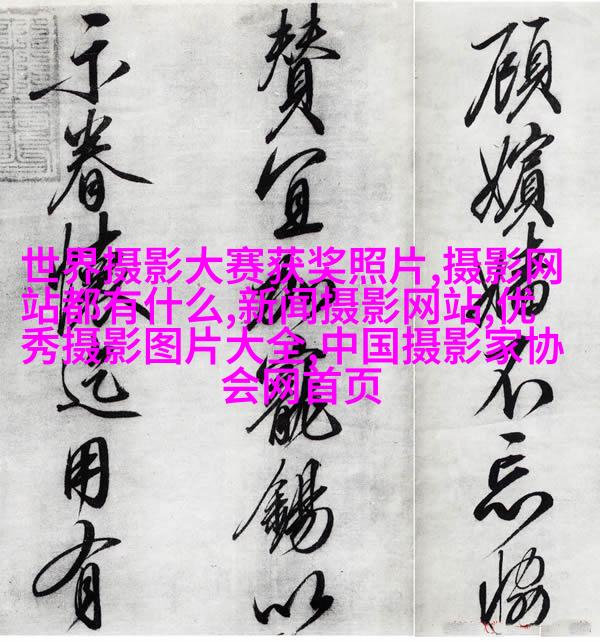 世界摄影大赛获奖照片,摄影网
站都有什么,新闻摄影网站,优
秀摄影图片大全,中国摄影家协
会网首页
顧嬪不忘恊
贊宜寵錫以
示眷懷迄用有